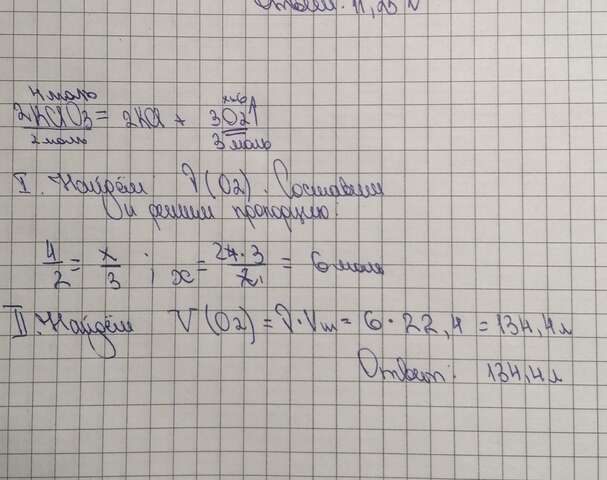 Ответ: 11,23 л
4 моль x моль
2KClO3 = 2KCl + 3O2↑
2 моль 3 моль
I. Найдём ν(O2). Составим
и решим пропорцию:
4/2 = x/3 ; x = 4·3/2 = 6 моль
II. Найдём V(O2) = ν·Vm = 6·22,4 = 134,4 л
Ответ: 134,4 л